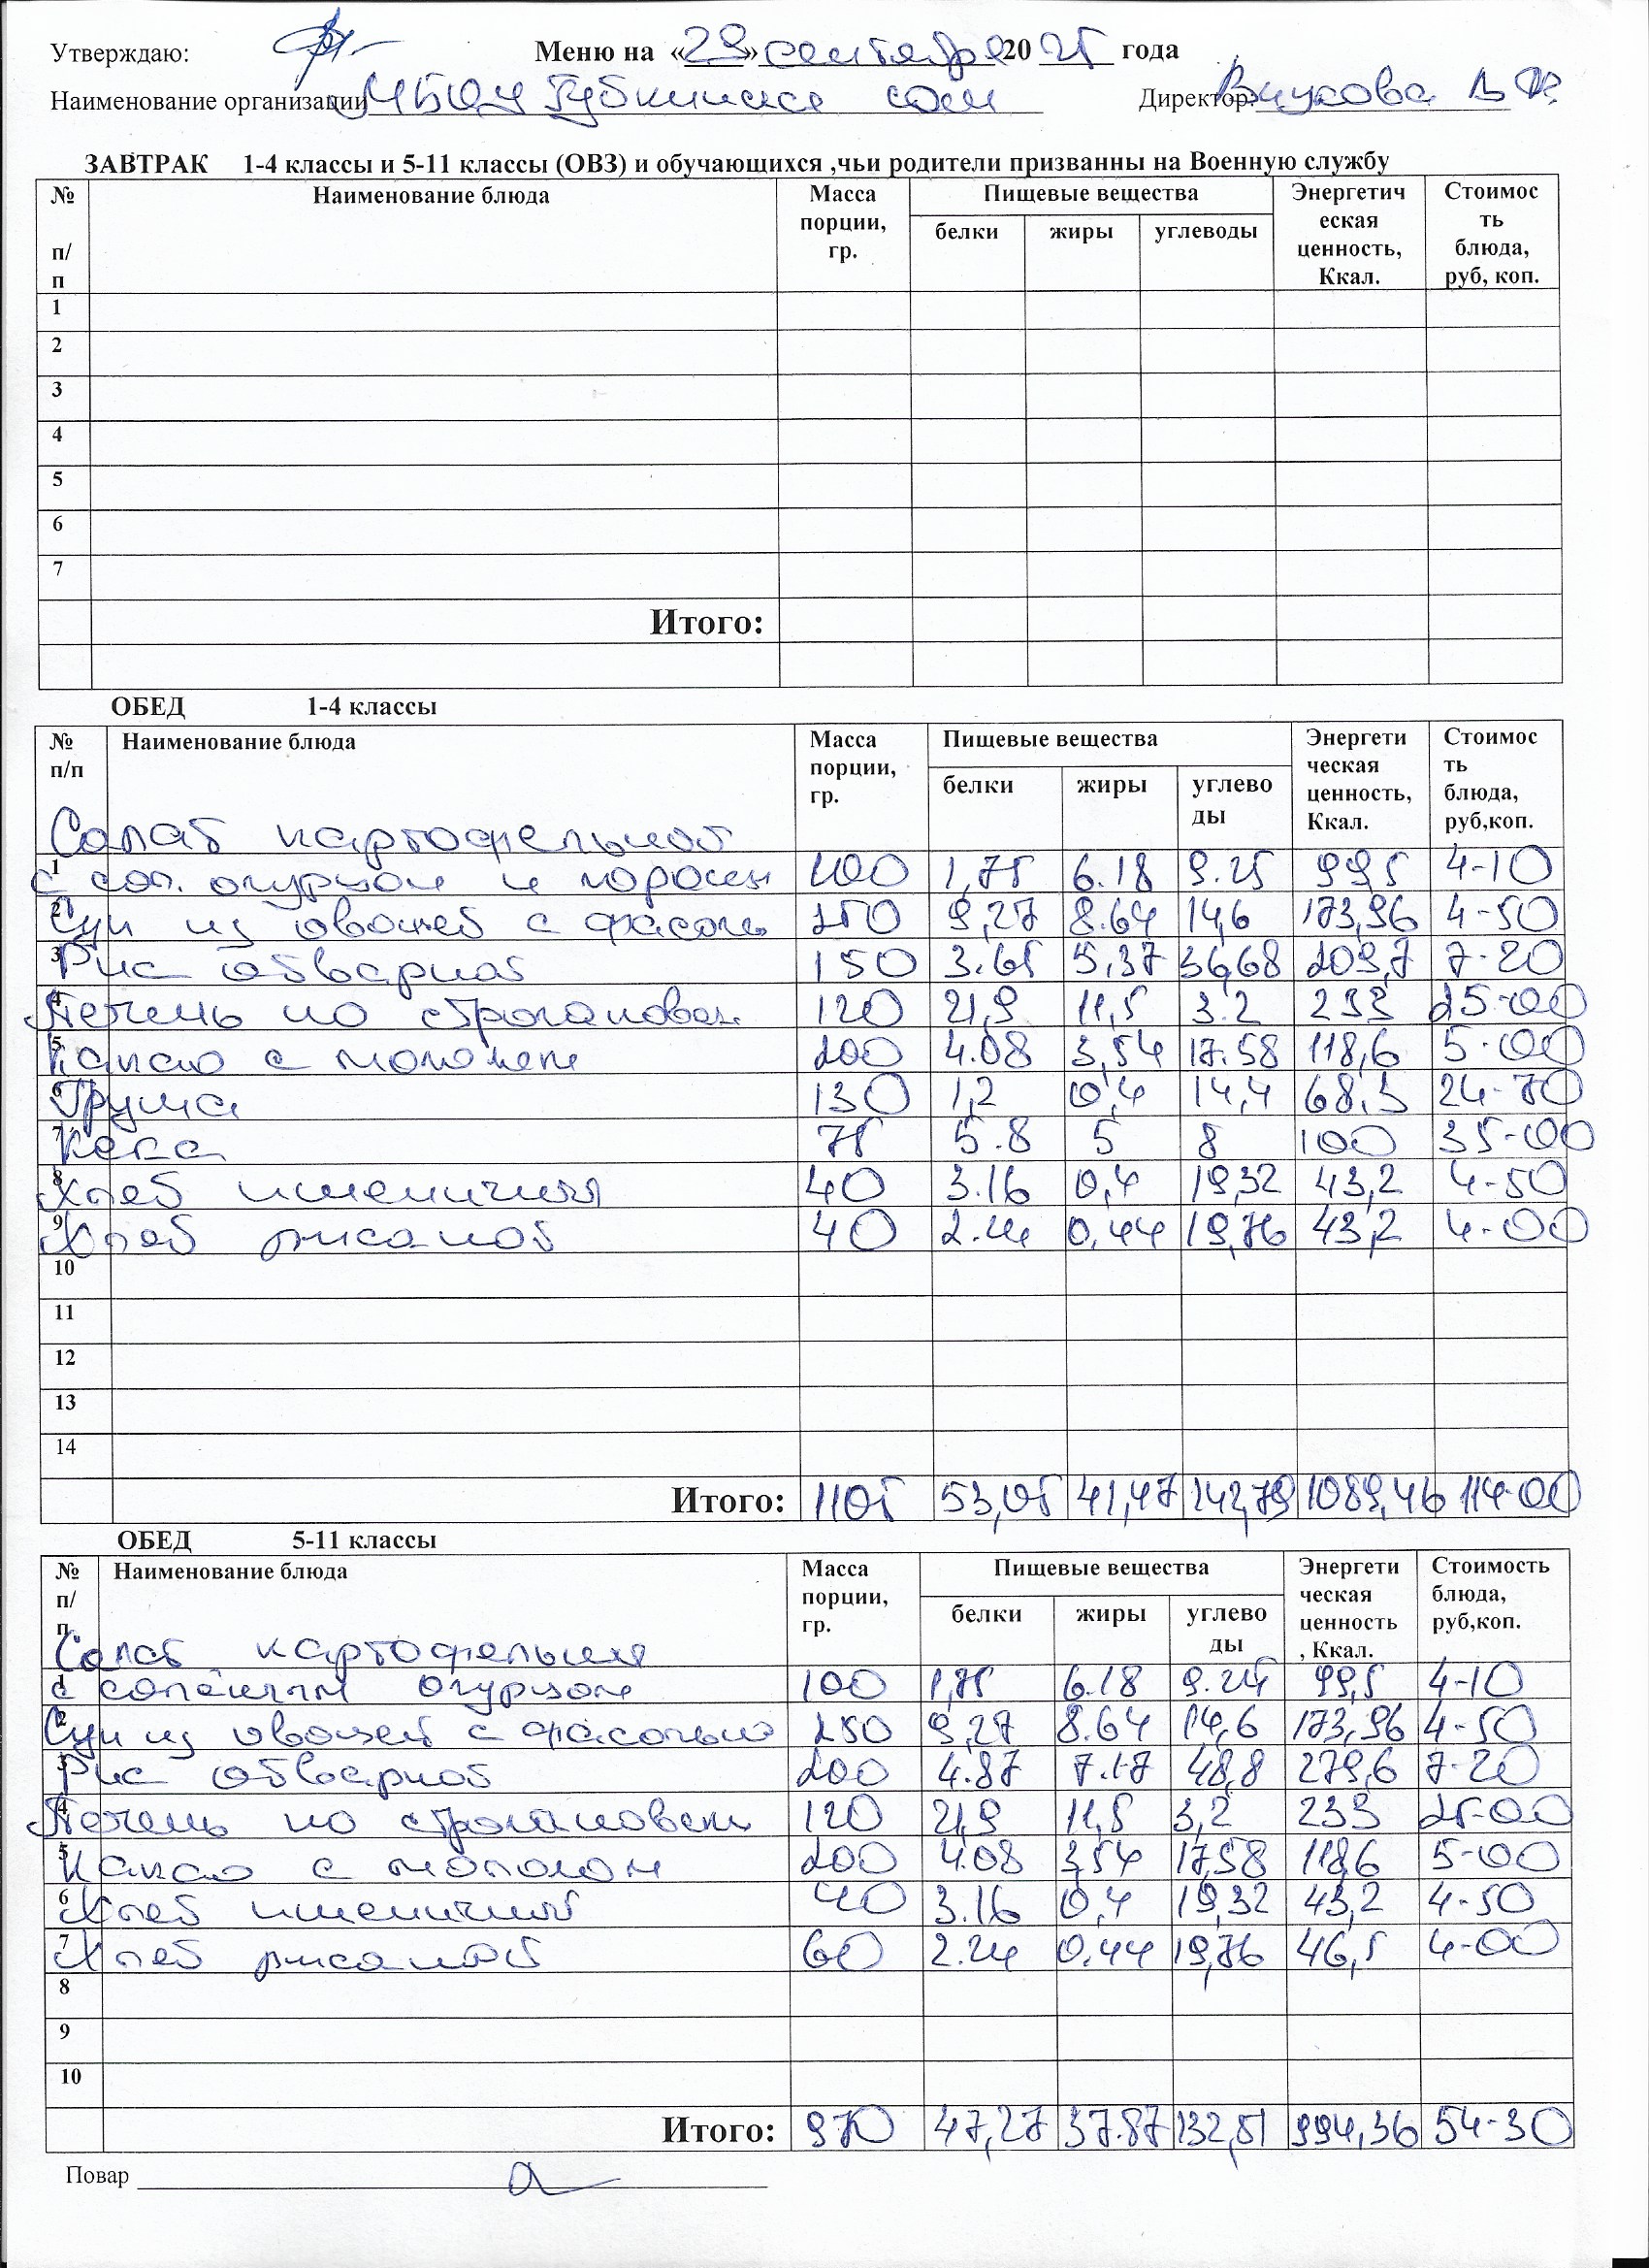 Утверждаю: Меню на «29» сентября 2025 года
Наименование организации МБОУ Губкинская сош Директор: В Ф
ЗАВТРАК 1-4 классы и 5-11 классы (ОВЗ) и обучающихся ,чьи родители призванны на Военную службу
№ п/п Наименование блюда Масса порции, гр. Пищевые вещества Энергетическая ценность, Ккал. Стоимость блюда, руб, коп.
белки жиры углеводы
1
2
3
4
5
6
7
Итого:
ОБЕД 1-4 классы
№ п/п Наименование блюда Масса порции, гр. Пищевые вещества Энергетическая ценность, Ккал. Стоимость блюда, руб,коп.
белки жиры углеводы
Салат картофельной
1 с сол. огурцом и 100 1,75 6.18 9.25 99,5 4-10
2 Суп из овощей с фасоль 250 9,27 8.64 14,6 173,96 4-50
3 Рис отварной 150 3.65 5,37 36,68 209,7 7-20
4 Печень по строгановски 120 21,9 11,5 3.2 233 25-00
5 Какао с молоком 200 4.08 3,54 17.58 118,6 5-00
6 Груша 130 1,2 0,4 14,4 68,3 24-70
7 75 5.8 5 8 100 35-00
8 Хлеб пшеничный 40 3.16 0,4 19,32 43,2 4-50
9 Хлеб ржаной 40 2.24 0,44 19,76 43,2 4-00
10
11
12
13
14
Итого: 1105 53,05 41,47 142,79 1089,46 114-00
ОБЕД 5-11 классы
№ п/п Наименование блюда Масса порции, гр. Пищевые вещества Энергетическая ценность, Ккал. Стоимость блюда, руб,коп.
белки жиры углеводы
Салат картофельный
1 с солёным огурцом 100 1,75 6.18 9.25 99,5 4-10
2 Суп из овощей с фасолью 250 9,27 8.64 14,6 173,96 4-50
3 Рис отварной 200 4.87 7.17 48,8 279,6 7-20
4 Печень по строгановски 120 21,9 11,5 3,2 233 25-00
5 Какао с молоком 200 4.08 3,54 17,58 118,6 5-00
6 Хлеб пшеничный 40 3.16 0,4 19,32 43,2 4-50
7 Хлеб ржаной 60 2.24 0,44 19,76 46,5 4-00
8
9
10
Итого: 970 47,27 37.87 132,51 994,36 54-30
Повар